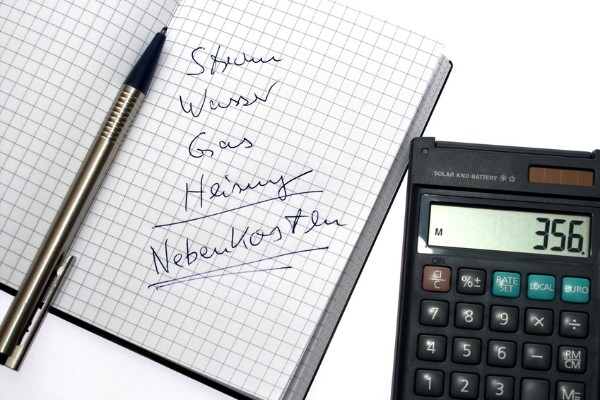 Strom
Wasser
Gas
Heizung
Nebenkosten
SOLAR AND BATTERY
M 356.
ON
CI/C %± RATE SET LOCAL EURO
7 8 9 × ÷
4 5 6 − RM CM
1 2 3 M=